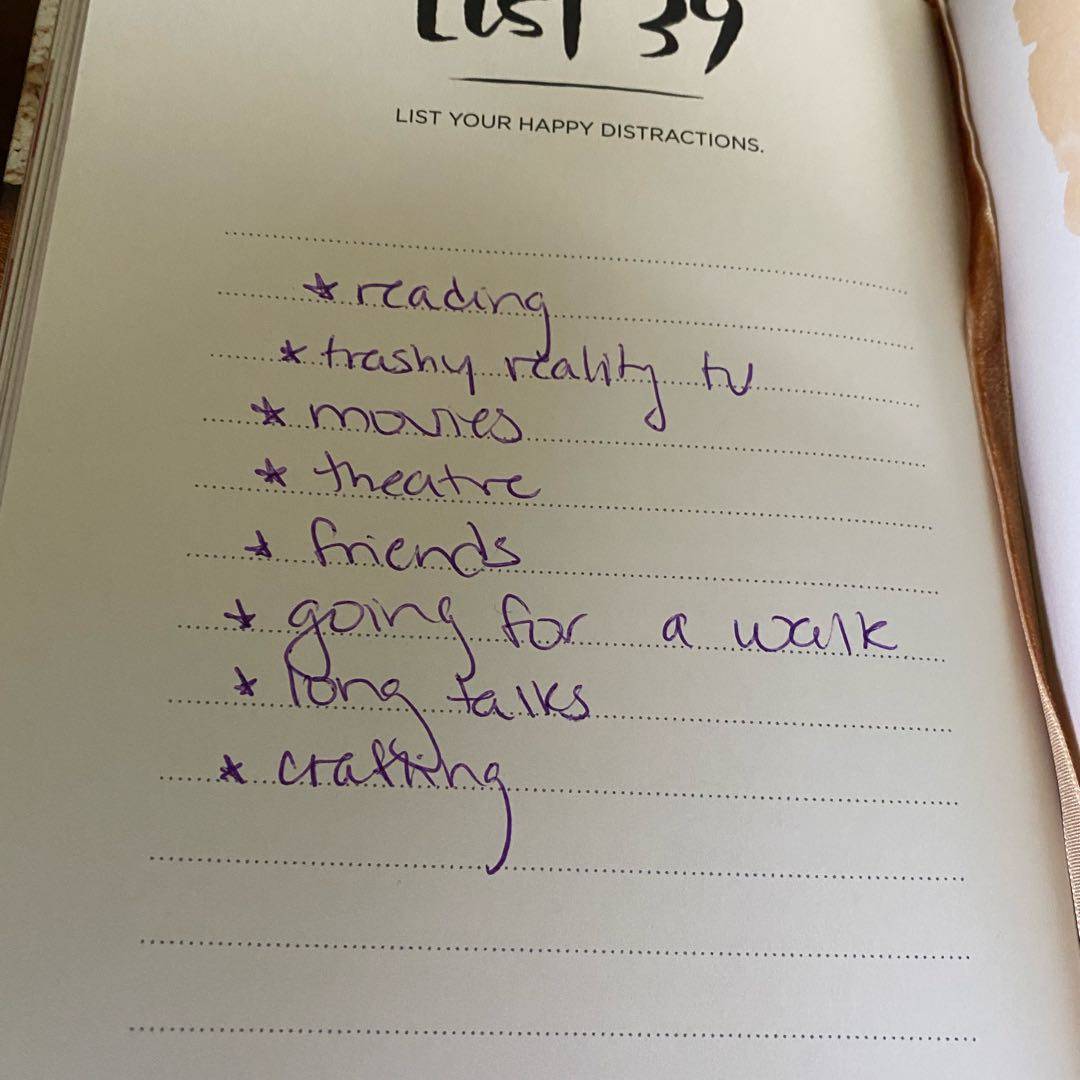 List 39
LIST YOUR HAPPY DISTRACTIONS.
* reading
* trashy reality tv
* movies
* theatre
* friends
* going for a walk
* long talks
* crafting